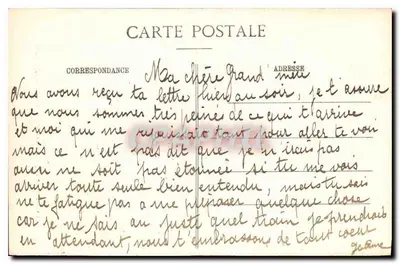 CARTE POSTALE
CORRESPONDANCE
ADRESSE
Ma chère Grand mère
Nous avons reçu ta lettre hier au soir, je t'assure
que nous sommes très peinés de ce qui t'arrive
et moi qui me rejouissais tant pour aller te voir
mais ce n'est pas dit que je n'irais pas
aussi ne soit pas étonnée si tu me vois
arriver toute seule bien entendu, mais tu sais
ne te fatigue pas a me préparer quelque chose
car je ne sais au juste quel train je prendrais
en attendant, nous t'embrassons de tout coeur